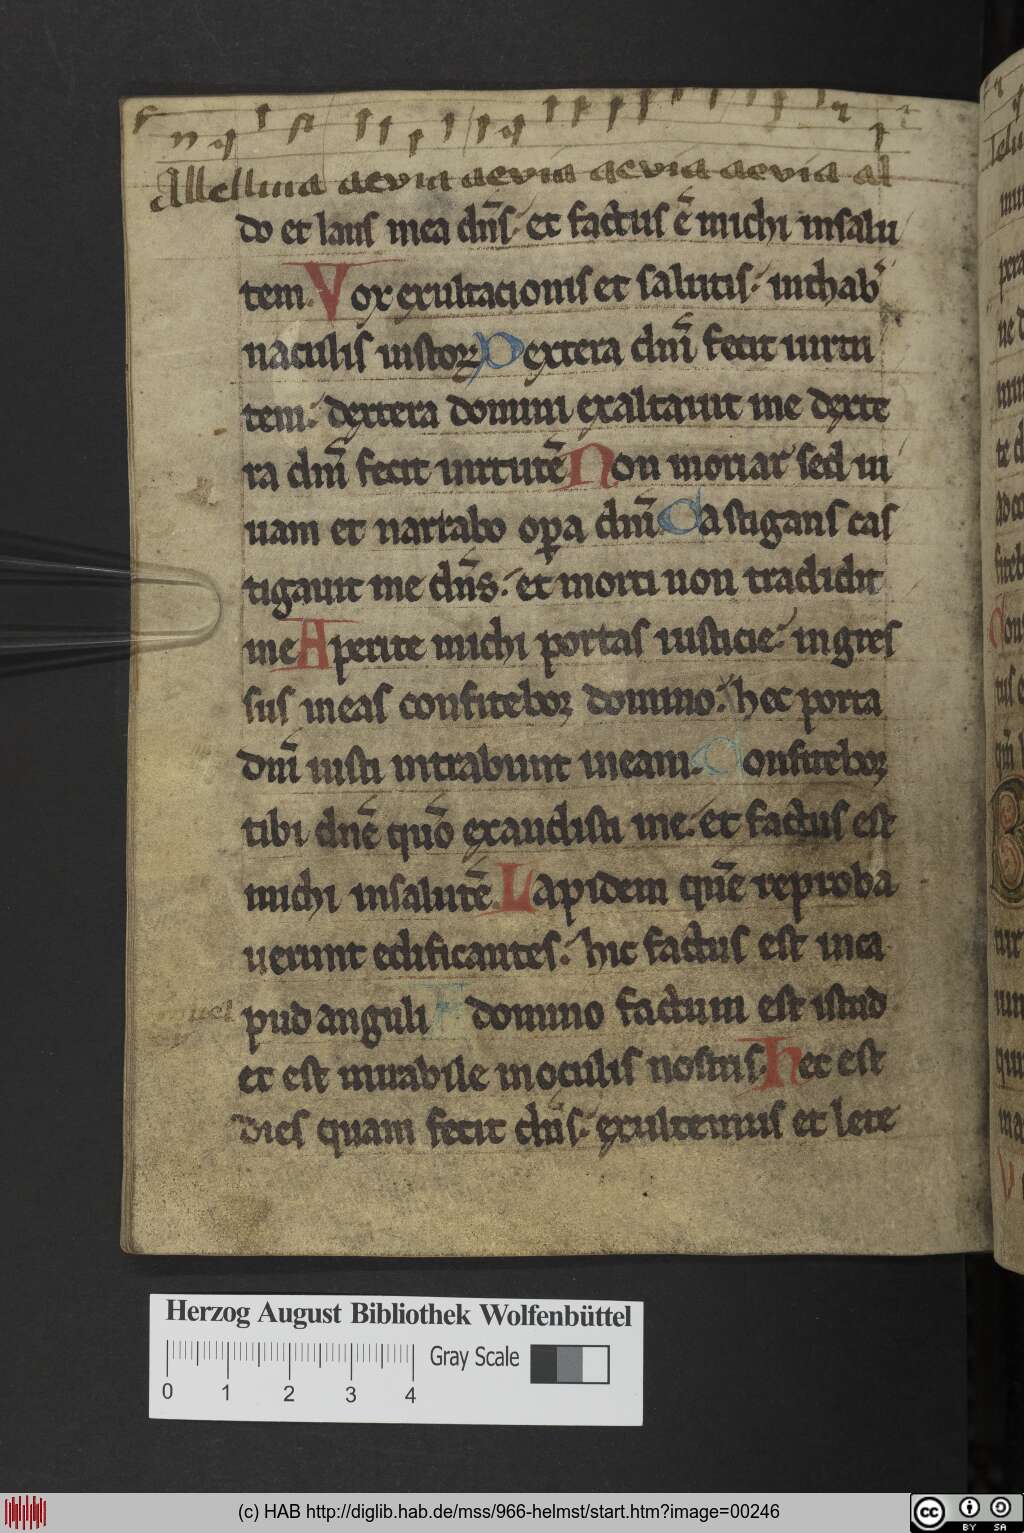 Allelluia aevia aevia aevia aevia al
do et laus mea dn̄s· et factus ē michi insalu
tem. Vox exultacionis et salutis· inthab̄
naculis iustoꝝ Dextera dn̄i fecit uirtu
tem· dextera domini exaltauit me dexte
ra dn̄i fecit uirtutē Non moriar sed ui
uam et narrabo opꝑa dn̄i Castigans cas
tigauit me dn̄s· et morti non tradidit
me Aperite michi portas iusticie· ingres
sus ineas confitebor domino· hec porta
dn̄i iusti intrabunt ineam. Confitebor
tibi dn̄e quō exaudisti me· et factus est
michi insalutē Lapidem quē reproba
uerunt edificantes· hic factus est inca
pud anguli domino factum est istud
et est mirabile inoculis nostris. Hec est
dies quam fecit dn̄s· exultemus et lete
Herzog August Bibliothek Wolfenbüttel
Gray Scale
0 1 2 3 4
(c) HAB http://diglib.hab.de/mss/966-helmst/start.htm?image=00246
cc BY SA